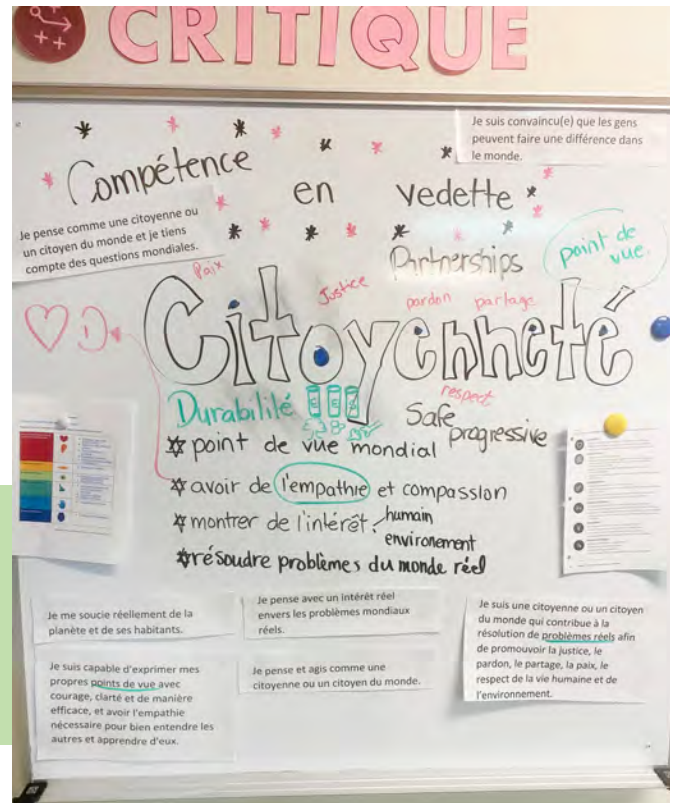 CRITIQUE
Je suis convaincu(e) que les gens
peuvent faire une différence dans
le monde.
Compétence
en vedette
Je pense comme une citoyenne ou
un citoyen du monde et je tiens
compte des questions mondiales.
Partnerships
point de
vue
Paix
Justice
pardon partage
Citoyenneté
respect
Durabilité
Safe
progressive
point de vue mondial
avoir de l'empathie et compassion
montrer de l'intérêt: humain
environement
résoudre problèmes du monde réel
Je me soucie réellement de la
planète et de ses habitants.
Je pense avec un intérêt réel
envers les problèmes mondiaux
réels.
Je suis une citoyenne ou un citoyen
du monde qui contribue à la
résolution de problèmes réels afin
de promouvoir la justice, le
pardon, le partage, la paix, le
respect de la vie humaine et de
l'environnement.
Je suis capable d'exprimer mes
propres points de vue avec
courage, clarté et de manière
efficace, et avoir l'empathie
nécessaire pour bien entendre les
autres et apprendre d'eux.
Je pense et agis comme une
citoyenne ou un citoyen du monde.